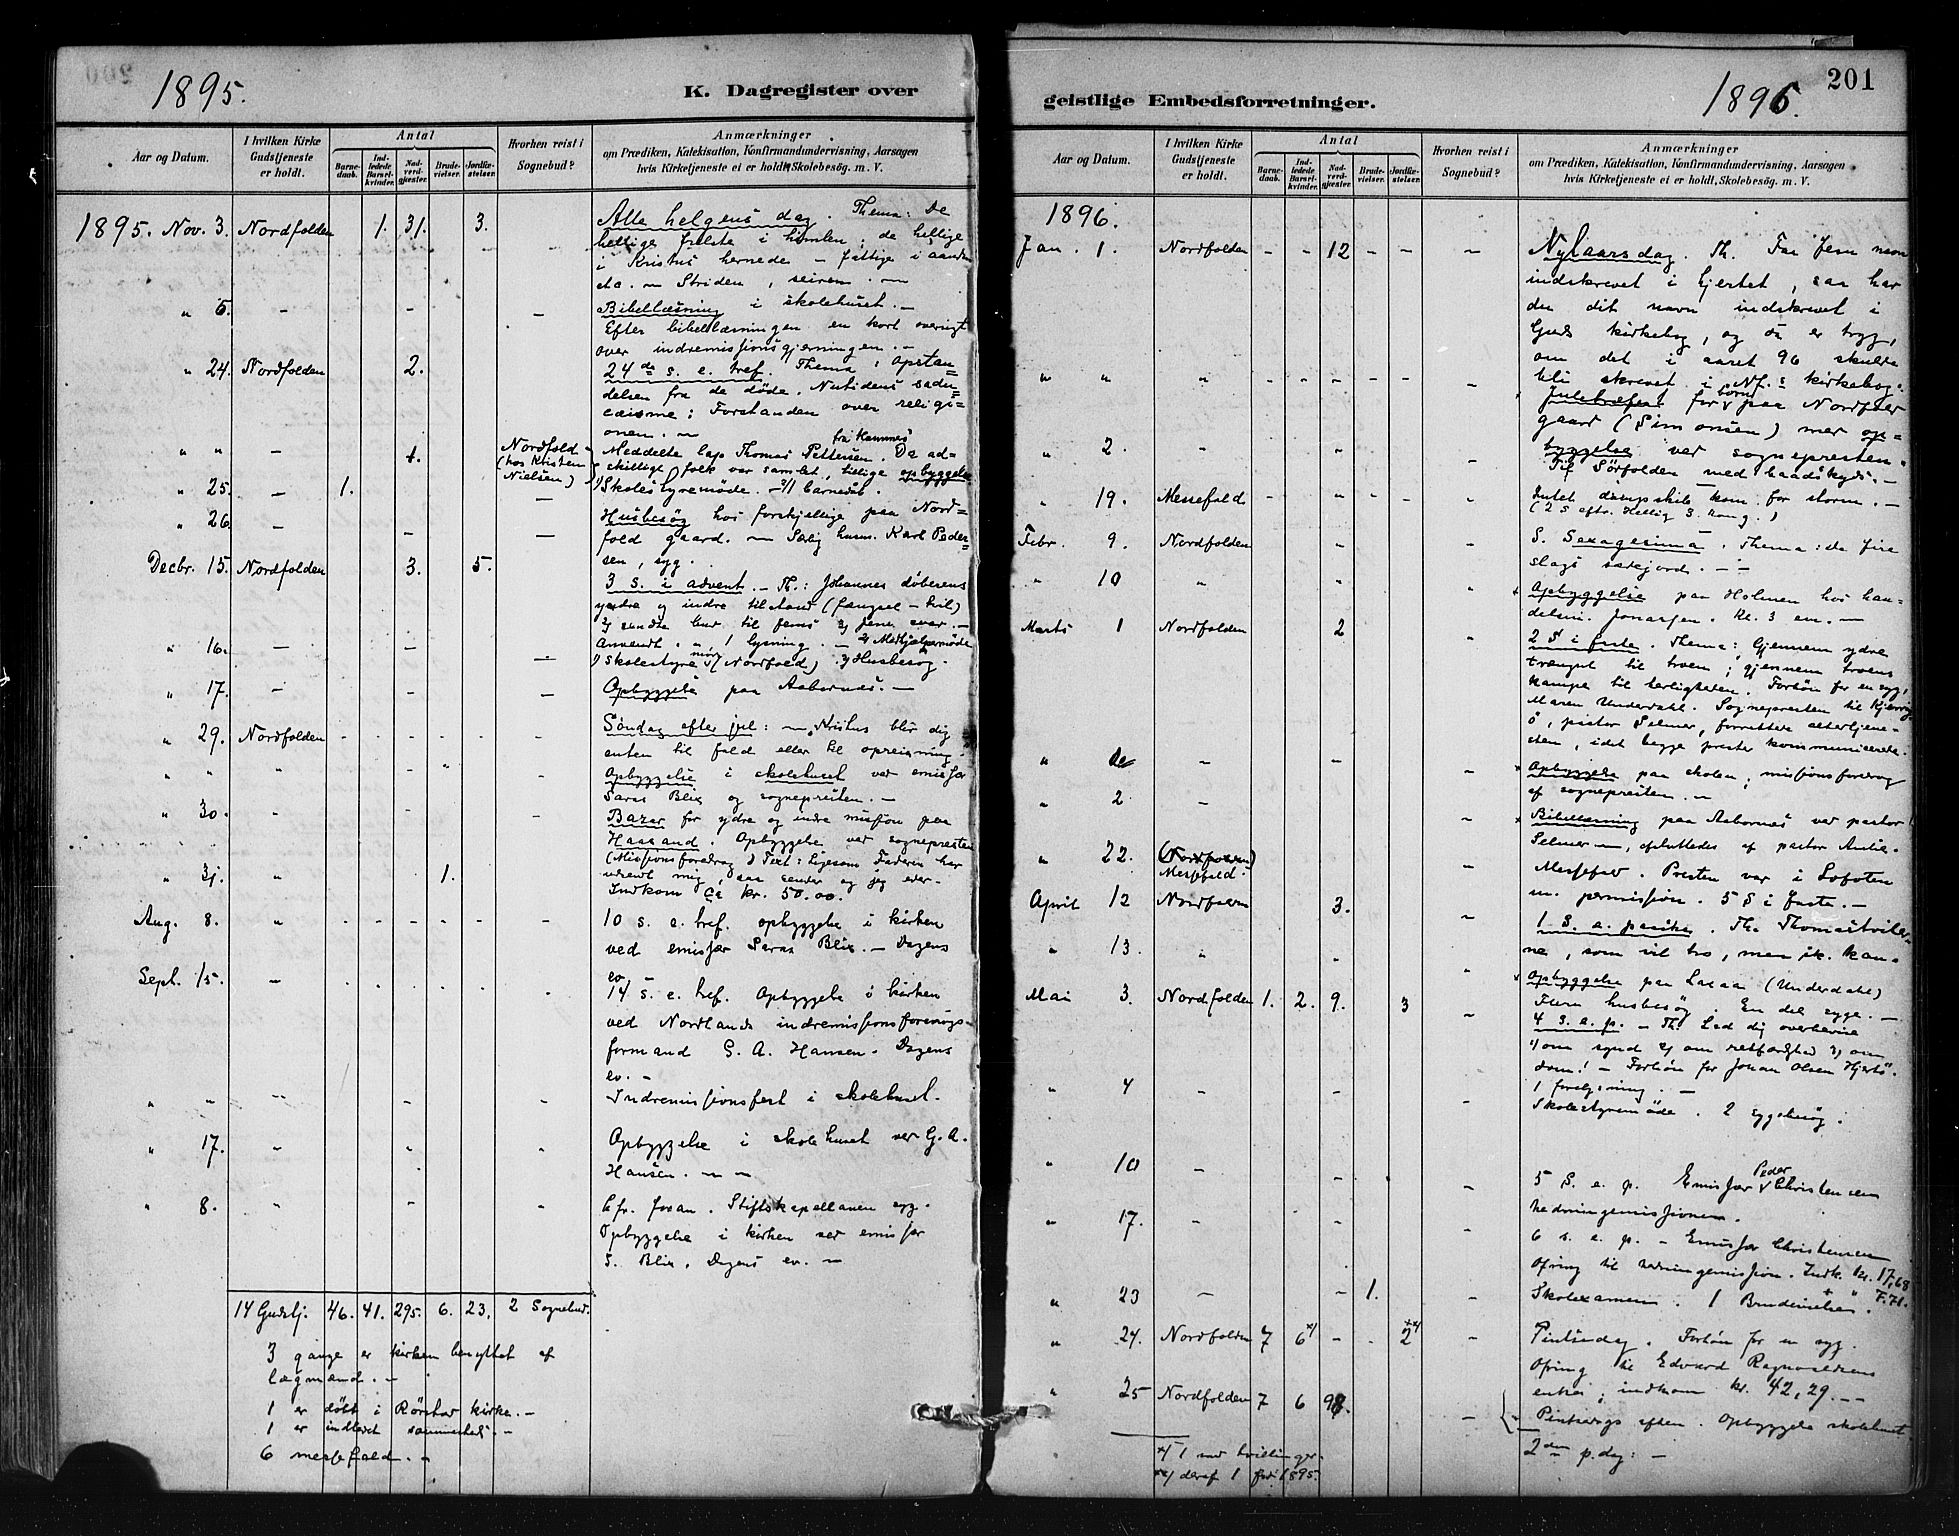 1895.
K. Dagregister over
Aar og Datum.
I hvilken Kirke Gudstjeneste er holdt.
Antal
Barnedaab.
Indledede Barselkvinder.
Nadverdgjester.
Brudevielser.
Jordfæstelser.
Hvorhen reist i Sognebud?
Anmærkninger
om Prædiken, Katekisation, Konfirmandundervisning, Aarsagen
hvis Kirketjeneste ei er holdt, Skolebesøg. m. V.
1895. Nov. 3. Nordfolden 1. 31. 3. Alle helgens dag. Thema: De
hellige frelste i himlen; de hellige
i Kristus hernede – fattige i aanden
eta. – Striden, seiren. –
" 6. – – – Bibellæsning i skolehuset. –
Efter bibellæsningen en kort oversigt
over indremissionsgjerningen. –
" 24. Nordfolden 2. 24de s. e. tref. Thema: Opstan-
delsen fra de døde. Nutidens sadu-
cæisme: Forstanden over religi-
onen. –
" " – 1. Nordfold (hos Kristen Nielsen) Meddelte Lap Thomas Pettersen fra Hamnes. Da ad-
skillige folk var samlet, tillige opbyggelse
" 25. – 1. – 1) Skolestyremøde. – 2) 1 barnedåb.
" 26. – – – Husbesøg hos forskjellige paa Nord-
fold gaard. – Særlig husm. Karl Peder-
sen, syg.
Decbr. 15. Nordfolden 3. 5. 3 s. i advent. – Th.: Johannes døberens
ydre og indre tilstand (fængsel – tvil)
" 16. – – – 1) Skolestyremøde (Nordfold) 2) Medhjælpermøde 3) Husbesøg.
" 17. – – – Opbyggelse paa Aabornes. –
" 29. Nordfolden Søndag efter jul: – Kristus blir dig
enten til fald eller til opreisning.
" " " Opbyggelse i skolehuset ved emissær
Saras Blix og sognepresten. –
" 30. Bazar for ydre og indre mission paa
. Opbyggelse ved sognepresten
(Missionsforedrag) Text: Ligesom Faderen har
udsendt mig, saa sender og jeg eder.
" 31. " 1. Indkom ca kr. 50.00.
Aug. 8. " 10 s. e. tref. opbyggelse i kirken
ved emissær Saras Blix. – Dagens
ev. –
Sept. 15. – 14 s. e. tref. Opbyggelse i kirken
ved Nordlands indremissionsforenings-
formand G. A. Hansen. Dagens
ev. –
" " " Indremissionsfest i skolehuset.
" 17. " Opbyggelse i skolehuset ved G. A.
Hansen. – –
" 8. " Cfr. foran. Stiftskapellanen syg.
Opbyggelse i kirken ved emissær
S. Blix. Dagens ev. –
14 Gudstj. 46. 41. 295. 6. 23. 2 Sognebud.
3 gange er kirken benyttet af
lægmænd. –
1 er døbt i Rørstad kirke. –
1 er indledet sammesteds. –
6 messefald. –
201
geistlige Embedsforretninger.
1896.
Aar og Datum.
I hvilken Kirke Gudstjeneste er holdt.
Antal
Barnedaab.
Indledede Barselkvinder.
Nadverdgjester.
Brudevielser.
Jordfæstelser.
Hvorhen reist i Sognebud?
Anmærkninger
om Prædiken, Katekisation, Konfirmandundervisning, Aarsagen
hvis Kirketjeneste ei er holdt, Skolebesøg. m. V.
1896.
Jan. 1. Nordfolden – – 12 – – – Nytaarsdag. Th. Faa Jesu navn
indskrevet i hjertet, saa har
du dit navn indskrevet i
Guds kirkebog, og du er tryg,
om det i aaret 96 skulde
bli skrevet i Nf.s kirkebog.
" " " – – – – – – Juletræfest for børn paa Nordfold
gaard (Simonsen) med op-
byggelse ved sognepresten.
" 2. " Til Sørfolden med baadskyds. –
" 19. Messefald – – Intet dampskib kom for storm. –
(2 S eftr. Hellig 3 kong.)
Febr. 9. Nordfolden S. Sexagesima. Thema: de fire
slags sædejord. – –
" 10 " Opbyggelse paa Holmen hos han-
delsm. Jonassen. Kl. 3 em. –
Marts 1 Nordfolden 2 2 S i faste. Thema: Gjennem ydre
trængsel til troen; gjennem troens
kampe til herligheden. Forbøn for en syg,
Maren Underdahl. Sognepresten til Kjerring-
ø, pastor Selmer, forrettede altertjene-
sten, idet begge prester kommunicerede.
" – Opbyggelse paa skolen, missionsforedrag
af sognepresten. –
" 2 – Bibellæsning paa Aabornes ved pastor
Selmer –, afsluttedes af pastor
" 22. (Nordfolden) Messefald. Messefald. Presten var i Lofoten
m. permission. 5 S i faste. –
April 12 Nordfolden 3. 1. S. e. paaske. Th. Thomastvilerne
, som vil tro, men ik. kan. –
" 13. " Opbyggelse paa (Underdahl)
Flere husbesøg En del syge. –
Mai 3. Nordfolden 1. 2. 9. 3 4 s. e. p. – Th. Lad dig overbevise
1) om synd 2) om retfærdighed 3) om
dom! – Forbøn for Johan Olsen Hjertø.
1 forlysning. –
" 4 – Skolestyremøde. 2 sygebesøg.
" 10 – 5 S. e. p. Emissær Peder Christensen
hedningemissionen.
" 17. – 6 s. e. p. – Emissær Christensen
Ofring til hedningemission. Indk. kr. 17,68
" 23 – – 1. Skolexamen. 1 Brudevielse. + " 7.71.
" 24. Nordfolden 7 6 *) – – 2 **) – Pintsedag. Forbøn for en syg.
Ofring til Edvard Ragnvaldsens
enke; indkom kr. 42,29. – –
" 25 Nordfolden 7 6 98. – Pintsedags aften. Opbyggelse skolehuset
2den p.dag: –
*) 1 med tvillinger.
**) deraf 1 født 1895.